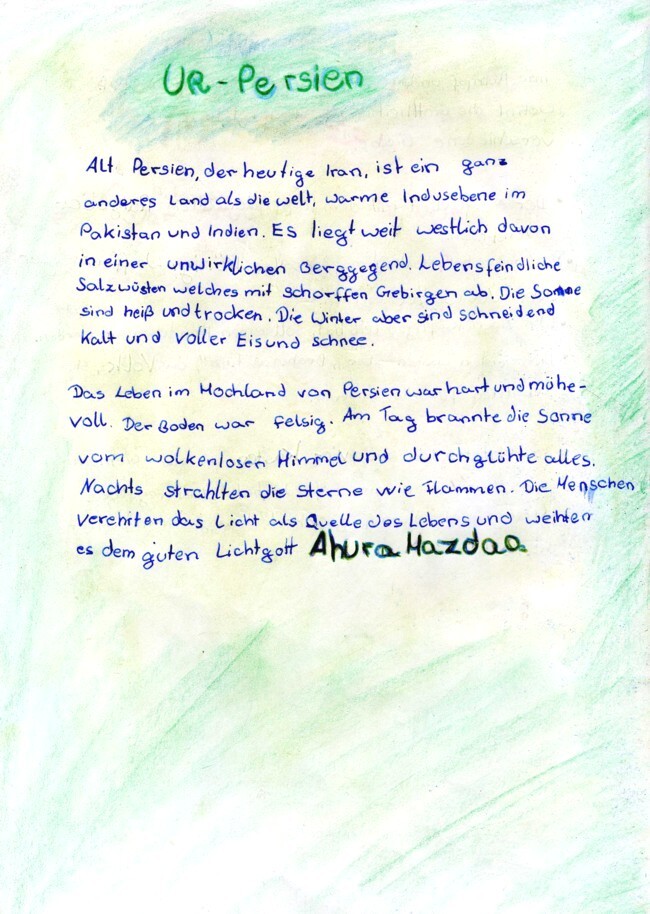 UR-Persien
Alt Persien, der heutige Iran, ist ein ganz
anderes Land als die welt, warme Indusebene im
Pakistan und Indien. Es liegt weit westlich davon
in einer unwirklichen Berggegend. Lebensfeindliche
Salzwüsten welches mit schorffen Gebirgen ab. Die Sonne
sind heiß und trocken. Die Winter aber sind schneidend
Kalt und voller Eis und schnee.
Das Leben im Hochland von Persien war hart und mühe-
voll. Der Boden war felsig. Am Tag brannte die Sonne
vom wolkenlosen Himmel und durchglühte alles.
Nachts strahlten die Sterne wie Flammen. Die Menschen
verehrten das Licht als Quelle des Lebens und weihten
es dem guten Lichtgott Ahura Mazdao